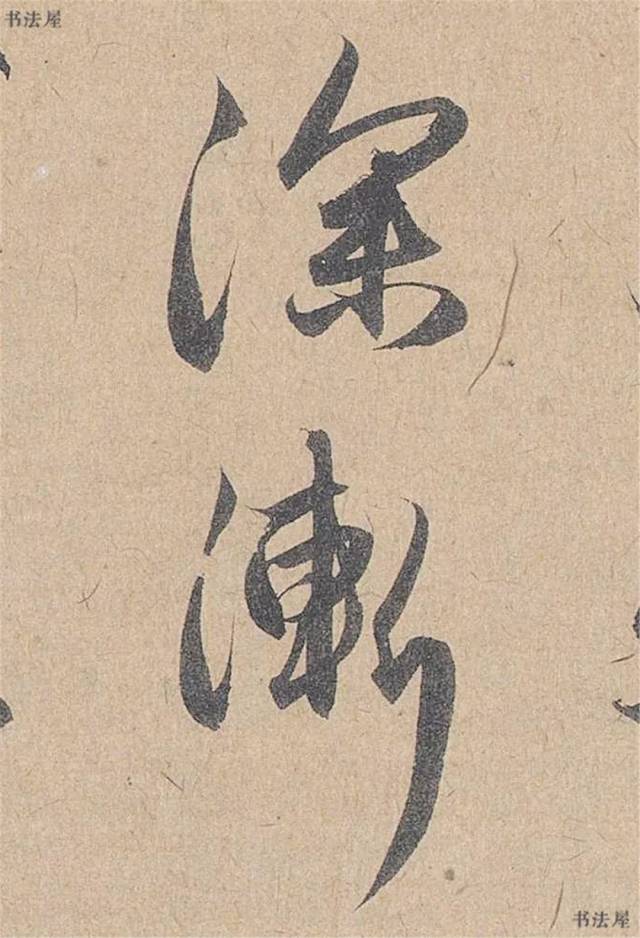 书法屋
深
漸
书法屋